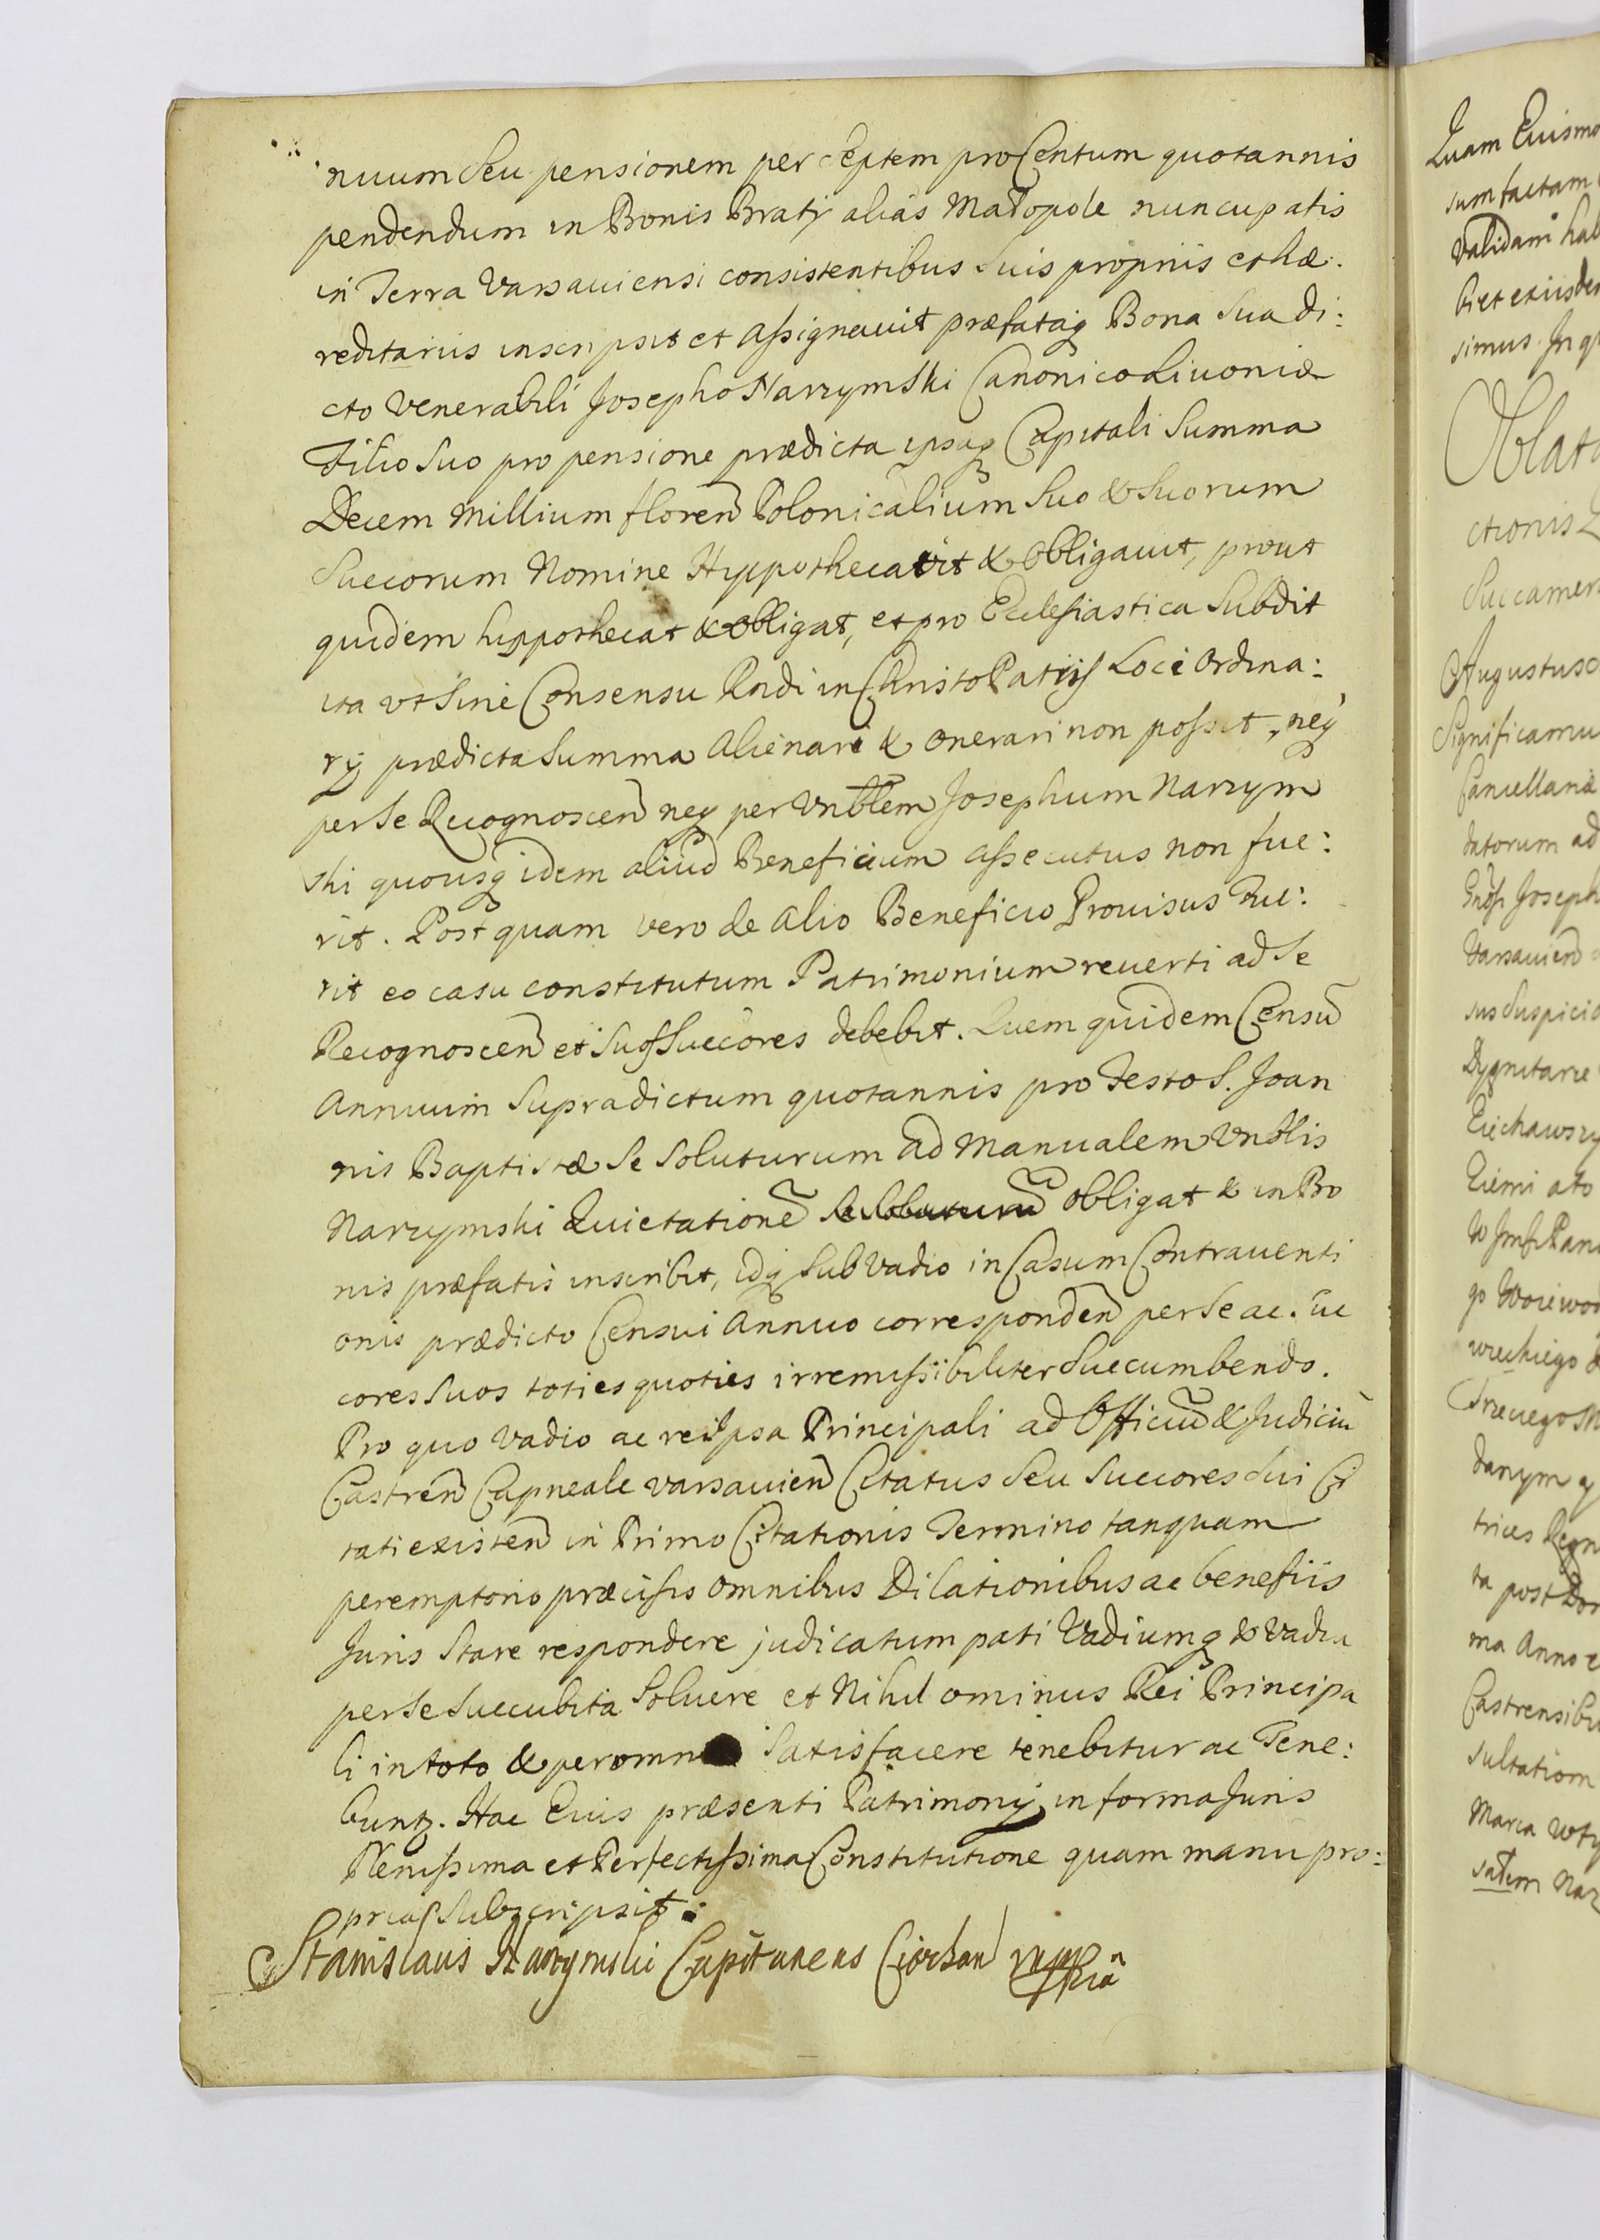 nuum Seu pensionem per Septem pro Centum quotannis
pendendum in Bonis Bratÿ aliás Małopole nuncupatis
in Terra Varsauiensi consistentibus Suis propriis et hæ:
reditariis inscripsit et Assignauit præfataq Bona Sua di:
cto Venerabili Josepho Narzymski Canonico Liuoniæ
Filio Suo pro pensione prædicta ipsaq Capitali Summa
Decem Millium floren Polonicalium Suo & Suorum
Succorum Nomine Hyppothecavit & Obligauit, prout
quidem hyppothecat & Obligat, et pro Ecclesiastica Subdit
ita vt Sine Consensu Rndi in Christo Patris Loci Ordina:
rÿ prædicta Summa Alienari & onerari non possit, neq
per Se Recognoscen neq per Vnblem Josephum Narzym
ski quousq idem aliud Beneficium assecutus non fue:
rit. Post quam vero de Alio Beneficio Prouisus Fue:
rit eo casu constitutum Patrimonium reuerti ad Se
Recognoscen et Suos Succores debebit. Quem quidem Censu
Annuum Supradictum quotannis pro Festo S. Joan
nis Baptistæ Se Soluturum Ad Manualem Vnblis
Narzymski Quietatione obligat & in Bo
nis præfatis inscribit, idq Sub Vadio in Casum Contrauenti
onis prædicto Censui Annuo corresponden per Se ac Suc
cores Suos toties quoties irremissibiliter Succumbendo.
Pro quo Vadio ac re Ipsa Principali ad Officiu & Judiciu
Castren Capneale Varsauien Citatus Seu Succores Sui Ci
tati existen in Primo Citationis Termino tanquam
peremptorio præcisis omnibus Dilationibus ac benefiis
Juris Stare respondere judicatum pati Vadiumq & Vadia
per Se Succubita Soluere et Nihil ominus Rei Principa
li in toto & per omnia Satisfacere tenebitur ac Tene:
buntz. Hac Eius præsenti Patrimonÿ in forma Juris
Plenissima et Perfectissima Constitutione quam manu pro:
pria Subscripsit.
Stanislaus Narzymski Capitaneus Ciechan mppria

Quam Eiusmo
sum factam
Validam hab
simus. In q
Oblata
ctionis
Succamer
Augustus
Significamu
Cancellariæ
datorum ad
Joseph
Varsauien
Castrensibu